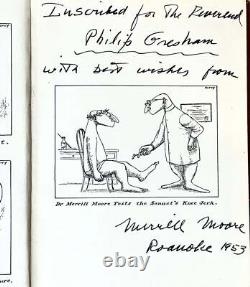 Inscribed for The Reverend
Philip Gresham
with best wishes from
Dr Merrill Moore Tests the Sonnet's Knee Jerk.
Merrill Moore
Roanoke 1953